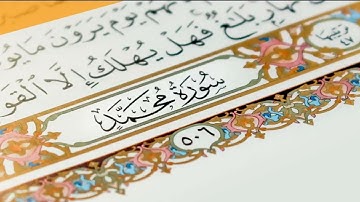 يَوْمَ يَرَوْنَ مَا يُو
بَلَٰغٌ فَهَلْ يُهْلَكُ إِلَّا ٱلْقَوْ
سُورَةُ مُحَمَّدٍ
٥٠٦